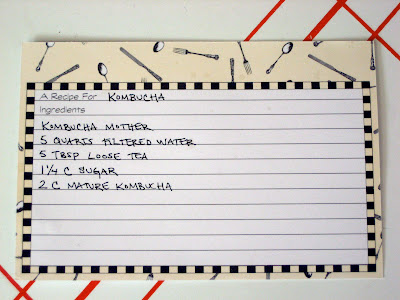 A Recipe For KOMBUCHA
Ingredients
KOMBUCHA MOTHER
5 QUARTS FILTERED WATER
5 TBSP LOOSE TEA
1 1/4 C SUGAR
2 C MATURE KOMBUCHA